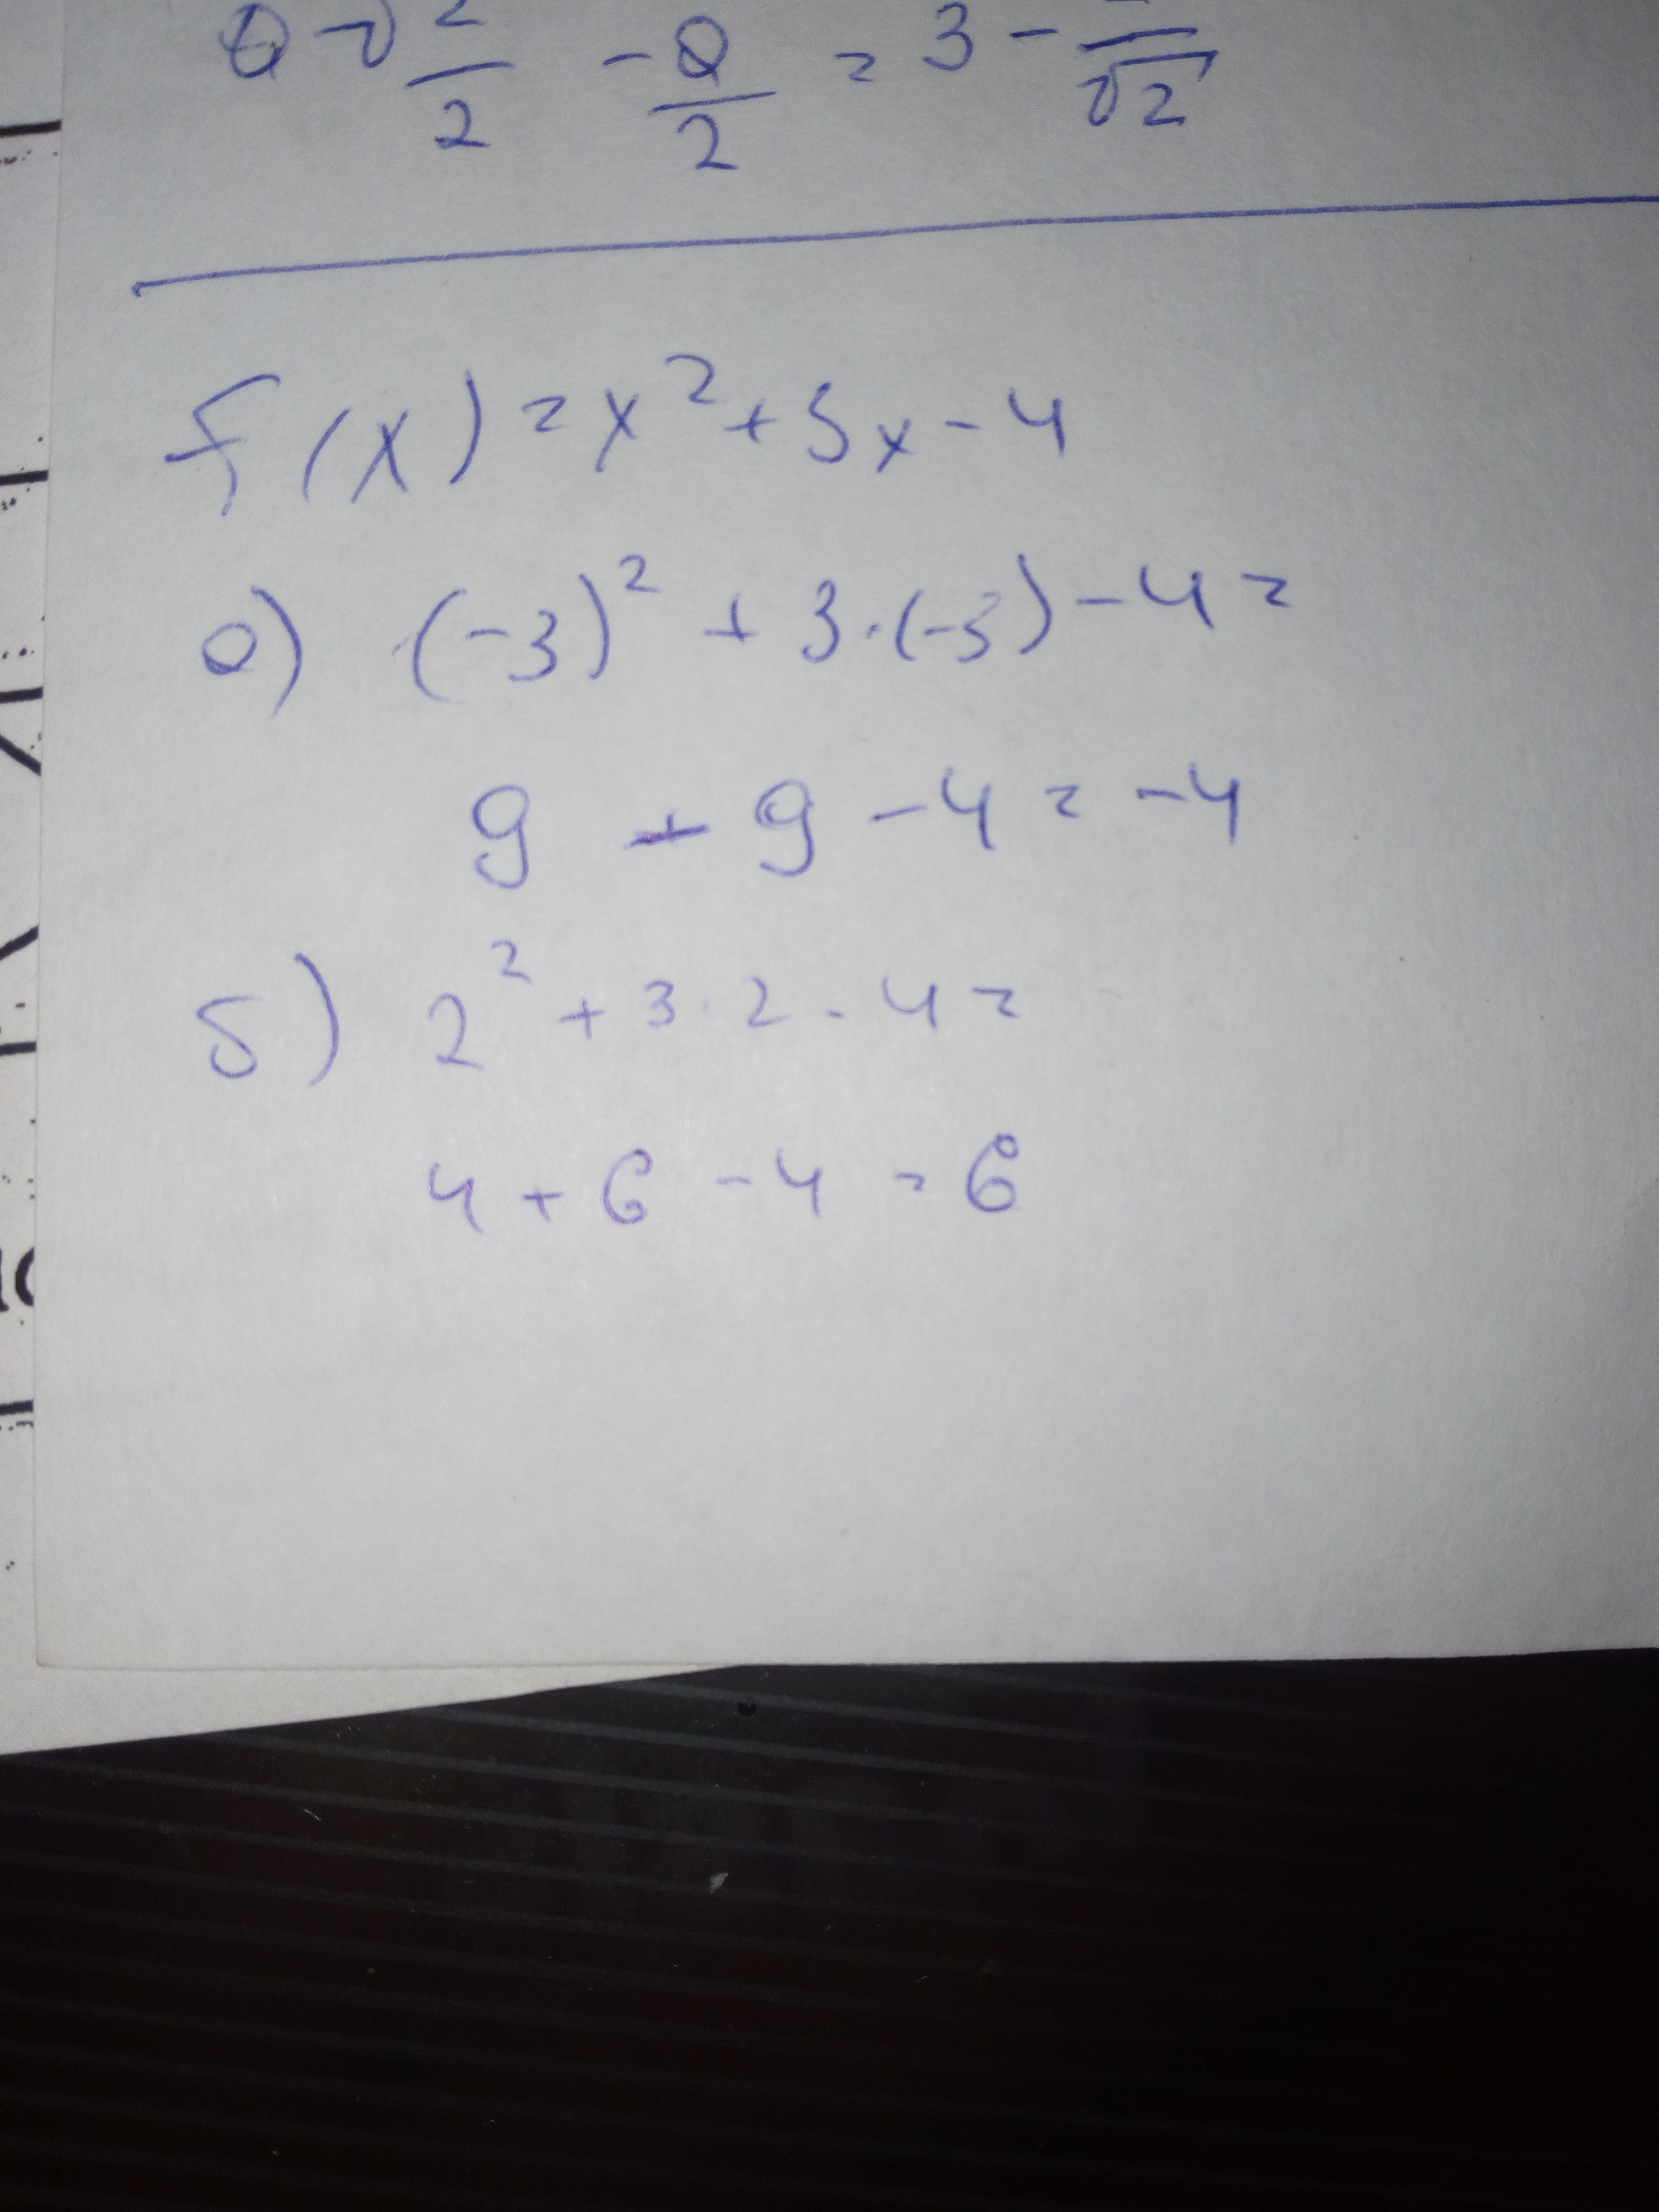 2/2 - 0/2 = 3 - /√2
f(x) = x² + 3x - 4
а) (-3)² + 3·(-3) - 4 =
9 - 9 - 4 = -4
б) 2² + 3·2 - 4 =
4 + 6 - 4 = 6